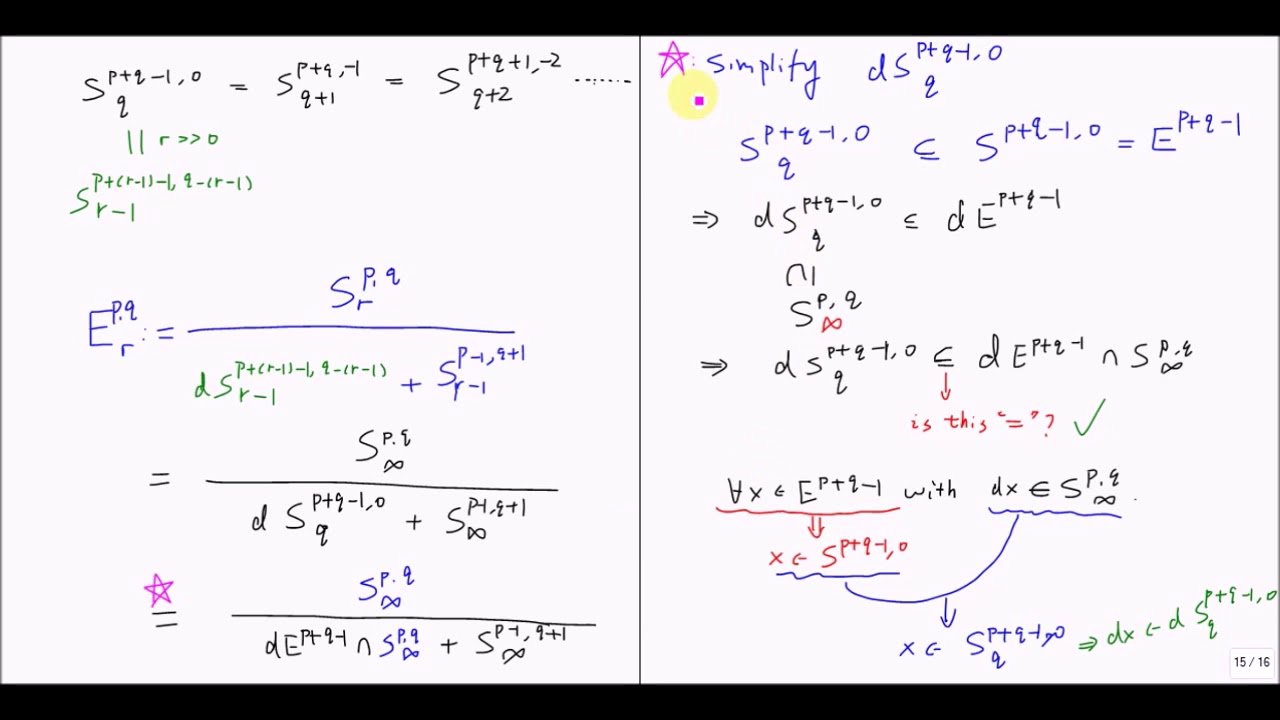 S_q^{p+q-1,0} = S_{q+1}^{p+q,-1} = S_{q+2}^{p+q+1,-2} ......
|| r >> 0
S_{r-1}^{p+(r-1)-1, q-(r-1)}
E_r^{p,q} := S_r^{p,q} / (dS_{r-1}^{p+(r-1)-1, q-(r-1)} + S_{r-1}^{p-1,q+1})
= S_∞^{p,q} / (d S_q^{p+q-1,0} + S_∞^{p-1,q+1})
☆ = S_∞^{p,q} / (dE^{p+q-1} ∩ S_∞^{p,q} + S_∞^{p-1,q+1})
☆: Simplify dS_q^{p+q-1,0}
S_q^{p+q-1,0} ⊆ S^{p+q-1,0} = E^{p+q-1}
⇒ dS_q^{p+q-1,0} ⊆ dE^{p+q-1}
∩|
S_∞^{p,q}
⇒ dS_q^{p+q-1,0} ⊆ dE^{p+q-1} ∩ S_∞^{p,q}
is this "="? ✓
∀x ∈ E^{p+q-1} with dx ∈ S_∞^{p,q}.
⇓
x ∈ S^{p+q-1,0}
x ∈ S_q^{p+q-1,0} ⇒ dx ∈ dS_q^{p+q-1,0}
15 / 16